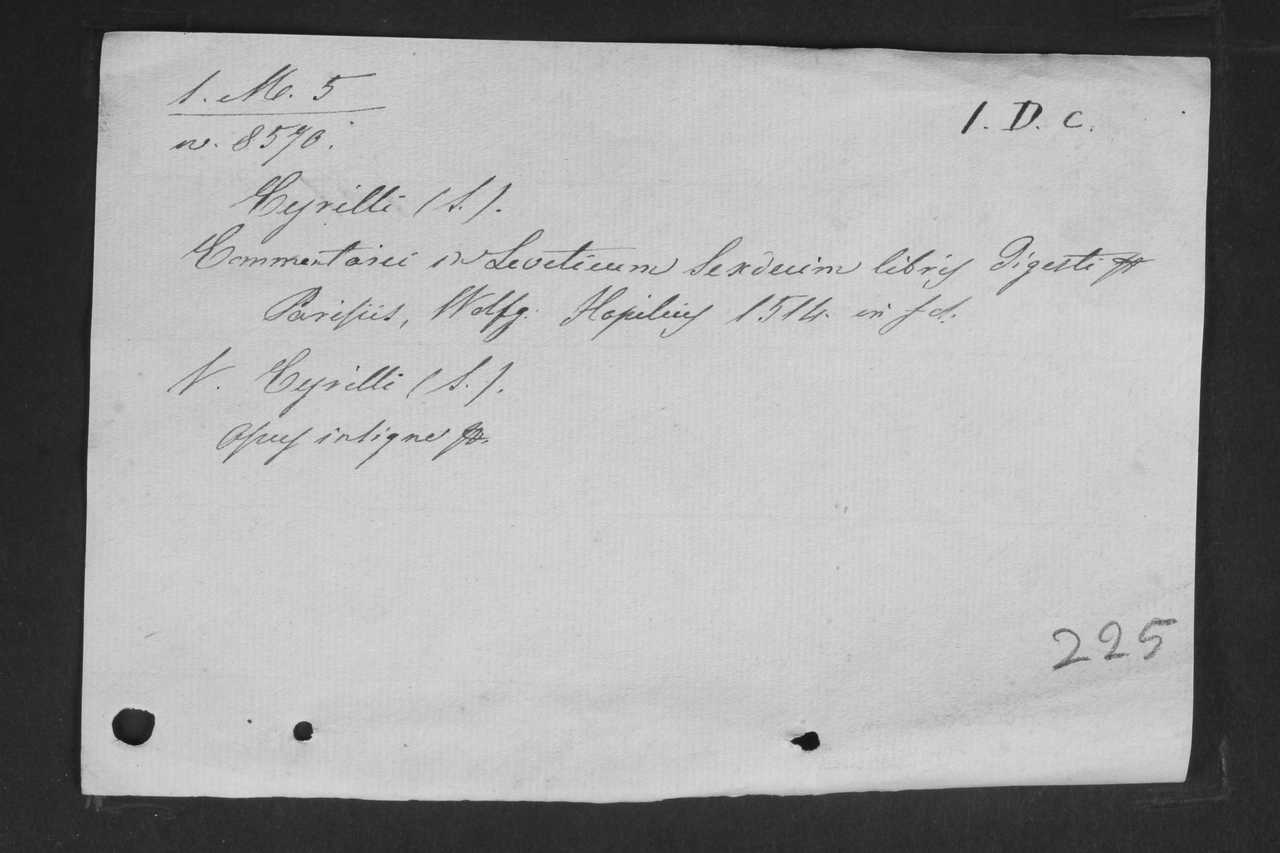 1. M. 5
n. 8570.
1. D. C.
Cyrilli (S.).
Commentarii in Leviticum sexdecim libris Digesti
Parisiis, Wolfg. Hopilius 1514. in fol.
N. Cyrilli (S.).
Opus insigne
225